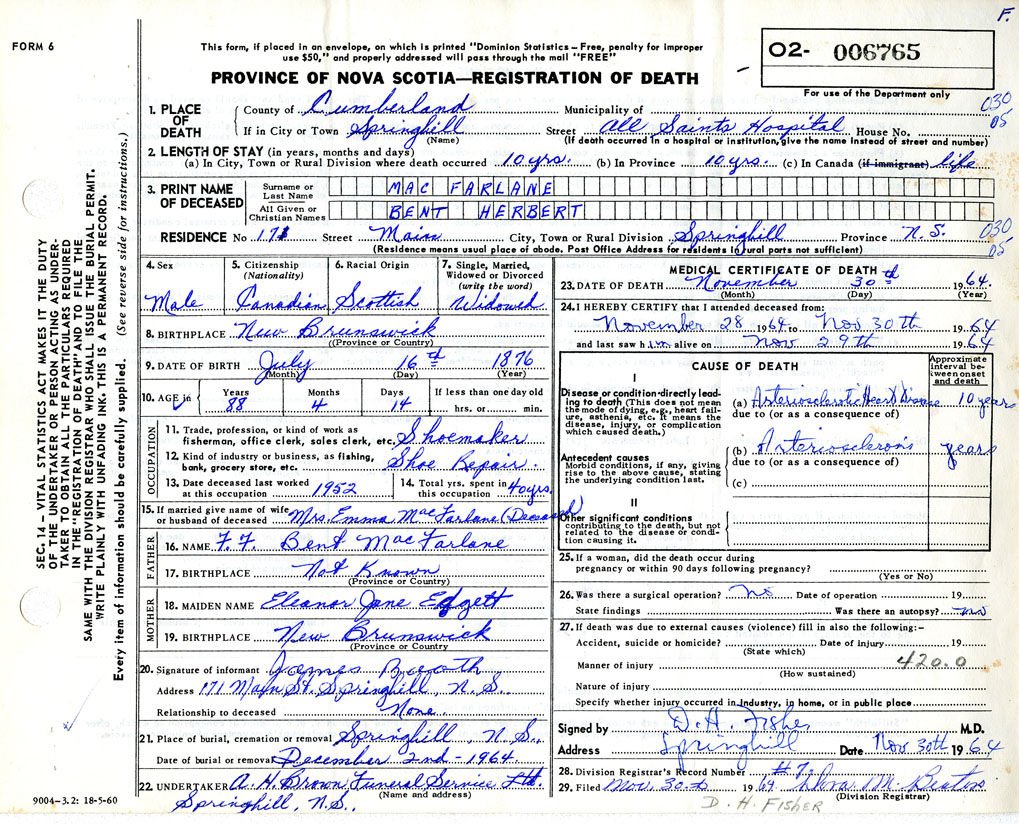 F.
FORM 6
This form, if placed in an envelope, on which is printed "Dominion Statistics – Free, penalty for improper
use $50," and properly addressed will pass through the mail "FREE"
PROVINCE OF NOVA SCOTIA—REGISTRATION OF DEATH
O2- 006765
For use of the Department only
SEC. 14 – VITAL STATISTICS ACT MAKES IT THE DUTY
OF THE UNDERTAKER OR PERSON ACTING AS UNDER-
TAKER TO OBTAIN ALL THE PARTICULARS REQUIRED
IN THE "REGISTRATION OF DEATH" AND TO FILE THE
SAME WITH THE DIVISION REGISTRAR WHO SHALL ISSUE THE BURIAL PERMIT.
WRITE PLAINLY WITH UNFADING INK. THIS IS A PERMANENT RECORD.
Every item of information should be carefully supplied. (See reverse side for instructions.)
1. PLACE OF DEATH
County of Cumberland Municipality of 030
If in City or Town Springhill Street All Saints Hospital House No. 05
(Name) (If death occurred in a hospital or institution, give the name instead of street and number)
2. LENGTH OF STAY (in years, months and days)
(a) In City, Town or Rural Division where death occurred 10 yrs. (b) In Province 10 yrs. (c) In Canada (if immigrant) life
3. PRINT NAME OF DECEASED
Surname or Last Name MAC FARLANE
All Given or Christian Names BENT HERBERT
RESIDENCE No. 171 Street Main City, Town or Rural Division Springhill Province N.S. 030
(Residence means usual place of abode. Post Office Address for residents in rural parts not sufficient) 05
4. Sex Male
5. Citizenship (Nationality) Canadian
6. Racial Origin Scottish
7. Single, Married, Widowed or Divorced (write the word) Widowed
8. BIRTHPLACE New Brunswick
(Province or Country)
9. DATE OF BIRTH July 16th 1876
(Month) (Day) (Year)
10. AGE in Years 88 Months 4 Days 14 If less than one day old hrs. or min.
OCCUPATION
11. Trade, profession, or kind of work as
fisherman, office clerk, sales clerk, etc. Shoemaker
12. Kind of industry or business, as fishing,
bank, grocery store, etc. Shoe Repair.
13. Date deceased last worked at this occupation 1952
14. Total yrs. spent in this occupation 40 yrs.
15. If married give name of wife
or husband of deceased Mrs. Emma MacFarlane (Deceased)
FATHER
16. NAME F. F. Bent MacFarlane
17. BIRTHPLACE Not Known
(Province or Country)
MOTHER
18. MAIDEN NAME Eleanor Jane Edgett
19. BIRTHPLACE New Brunswick
(Province or Country)
20. Signature of informant James Booth
Address 171 Main St. Springhill, N.S.
Relationship to deceased None.
21. Place of burial, cremation or removal Springhill, N.S.
Date of burial or removal December 2nd - 1964
22. UNDERTAKER A. H. Brown Funeral Service Ltd.
(Name and address)
Springhill, N.S.
9004–3.2: 18-5-60
MEDICAL CERTIFICATE OF DEATH
23. DATE OF DEATH November 30th 1964.
(Month) (Day) (Year)
24. I HEREBY CERTIFY that I attended deceased from:
November 28 1964 to Nov 30th 1964
and last saw him alive on Nov 29th 1964
CAUSE OF DEATH
Approximate interval between onset and death
I
Disease or condition directly lead-
ing to death (This does not mean
the mode of dying, e.g., heart fail-
ure, asthenia, etc. It means the
disease, injury, or complication
which caused death.)
(a) Arteriosclerotic Heart Disease 10 years
due to (or as a consequence of)
Antecedent causes
Morbid conditions, if any, giving
rise to the above cause, stating
the underlying condition last.
(b) Arteriosclerosis years
due to (or as a consequence of)
(c)
II
Other significant conditions
contributing to the death, but not
related to the disease or condi-
tion causing it.
25. If a woman, did the death occur during
pregnancy or within 90 days following pregnancy?
(Yes or No)
26. Was there a surgical operation? no Date of operation 19
State findings Was there an autopsy? no
27. If death was due to external causes (violence) fill in also the following:–
Accident, suicide or homicide? Date of injury 19
(State which)
Manner of injury 420.0
(How sustained)
Nature of injury
Specify whether injury occurred in industry, in home, or in public place
Signed by D. H. Fisher M.D.
Address Springhill Date Nov 30th 1964
28. Division Registrar's Record Number #7
29. Filed Nov. 30th 1964
(Division Registrar)
D. H. FISHER